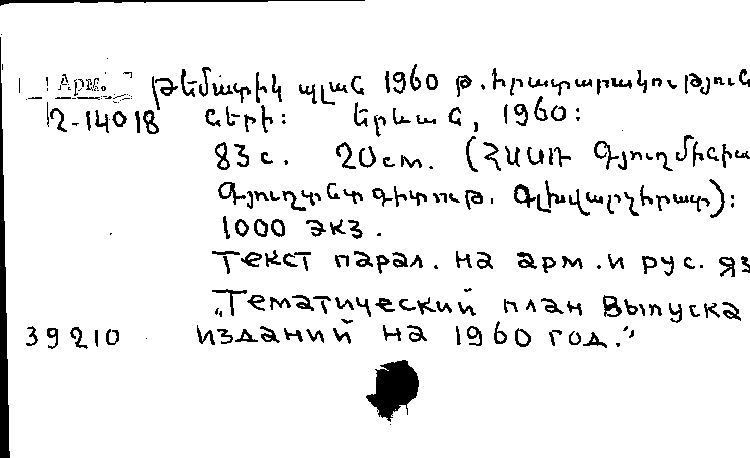 Арм. Թեմատիկ պլան 1960 թ. հրատարակություն
2-14018 ների: Երևան, 1960:
83 с. 20 см. (ՀՍՍՌ Գյուղմինիս
Գյուղտնտգիտութ. Գլխվարչհրատ):
1000 экз.
Текст парал. на арм. и рус. яз
„Тематический план выпуска
39210 изданий на 1960 год."